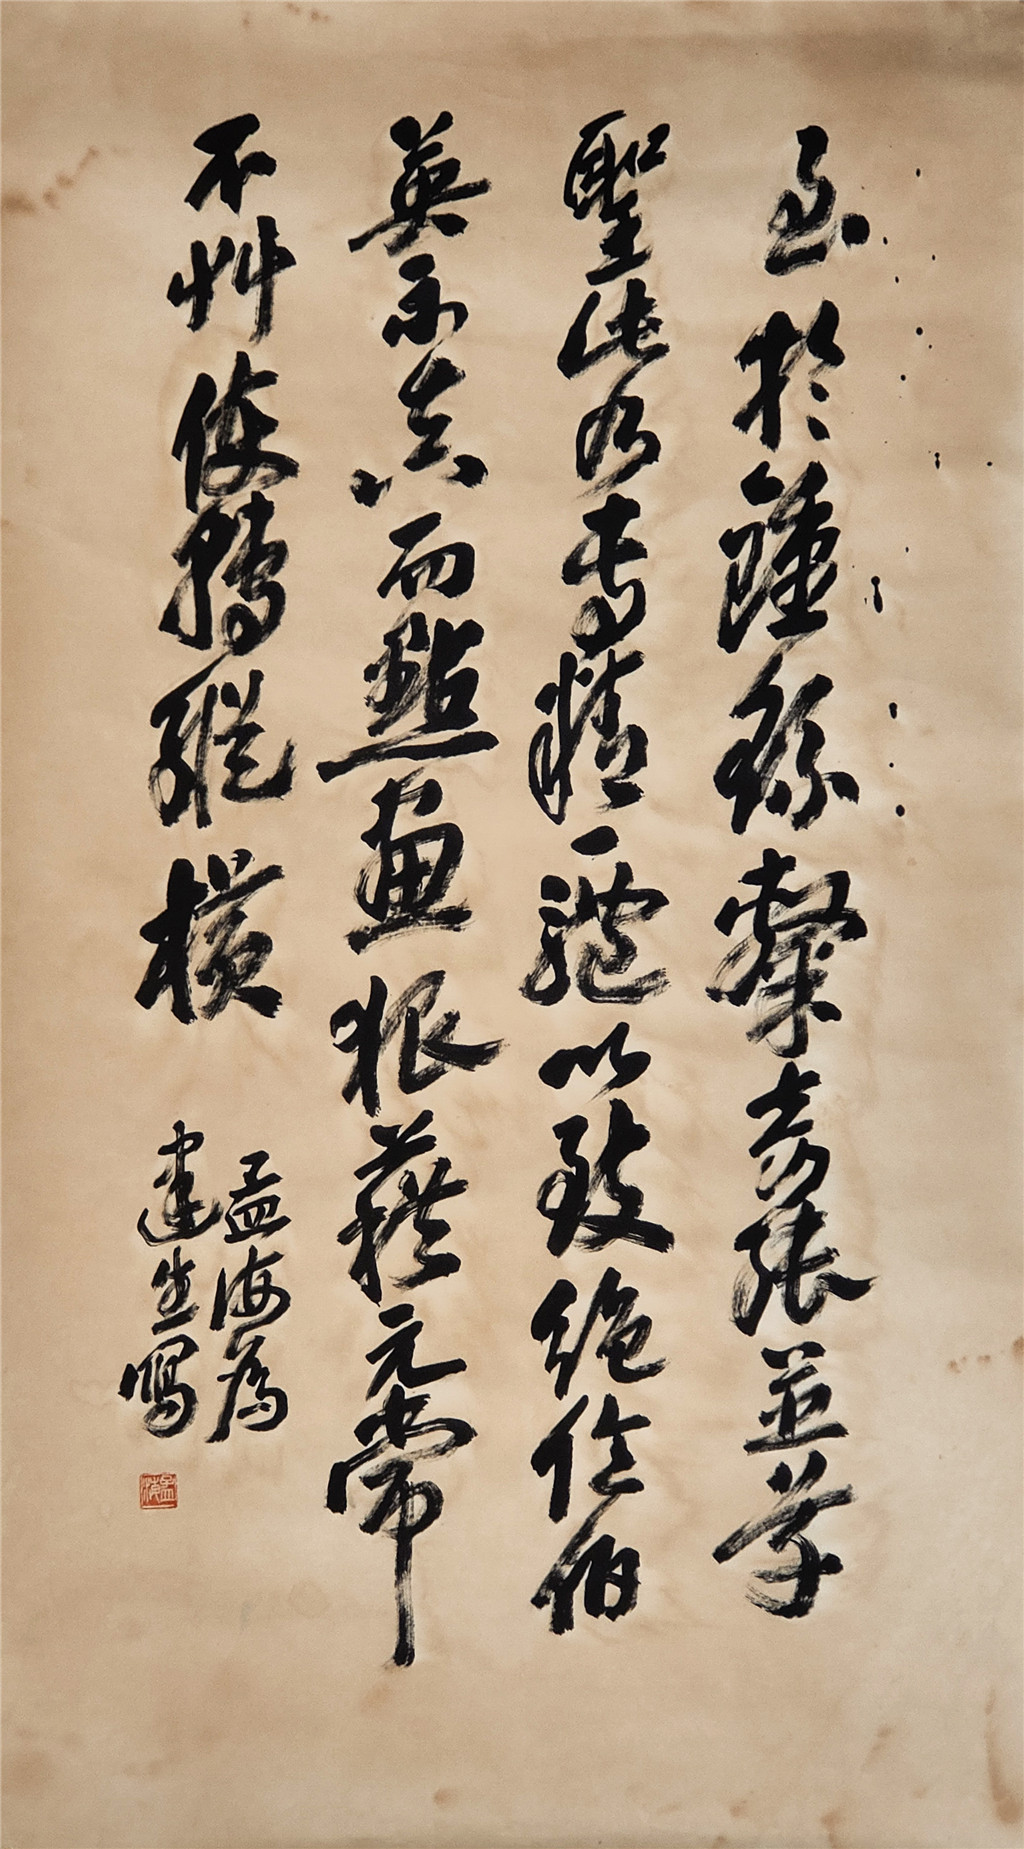 至於鍾繇隸奇張芝草
聖此乃專精一體以致絕倫伯
英不真而點畫狼藉元常
不艸使轉縱橫
孟海為
建生寫